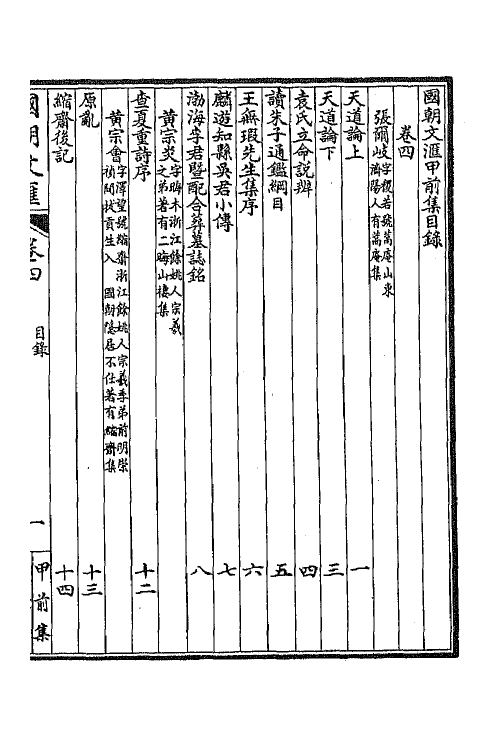 國朝文滙甲前集目錄
卷四
張爾岐字稷若號蒿庵山東
濟陽人有蒿庵集
天道論上 一
天道論下 三
袁氏立命說辨 四
讀朱子通鑑綱目 五
王無瑕先生集序 六
麟遊知縣吳君小傳 七
渤海李君暨配合葬墓誌銘 八
黃宗炎字晦木浙江餘姚人宗羲
之弟著有二晦山棲集
查夏重詩序 十二
黃宗會字澤望號縮齋浙江餘姚人宗羲季弟前明崇
禎間拔貢生入 國朝隱居不仕著有縮齋集
原亂 十三
縮齋後記 十四
國朝文滙 卷四 目錄 一 甲前集